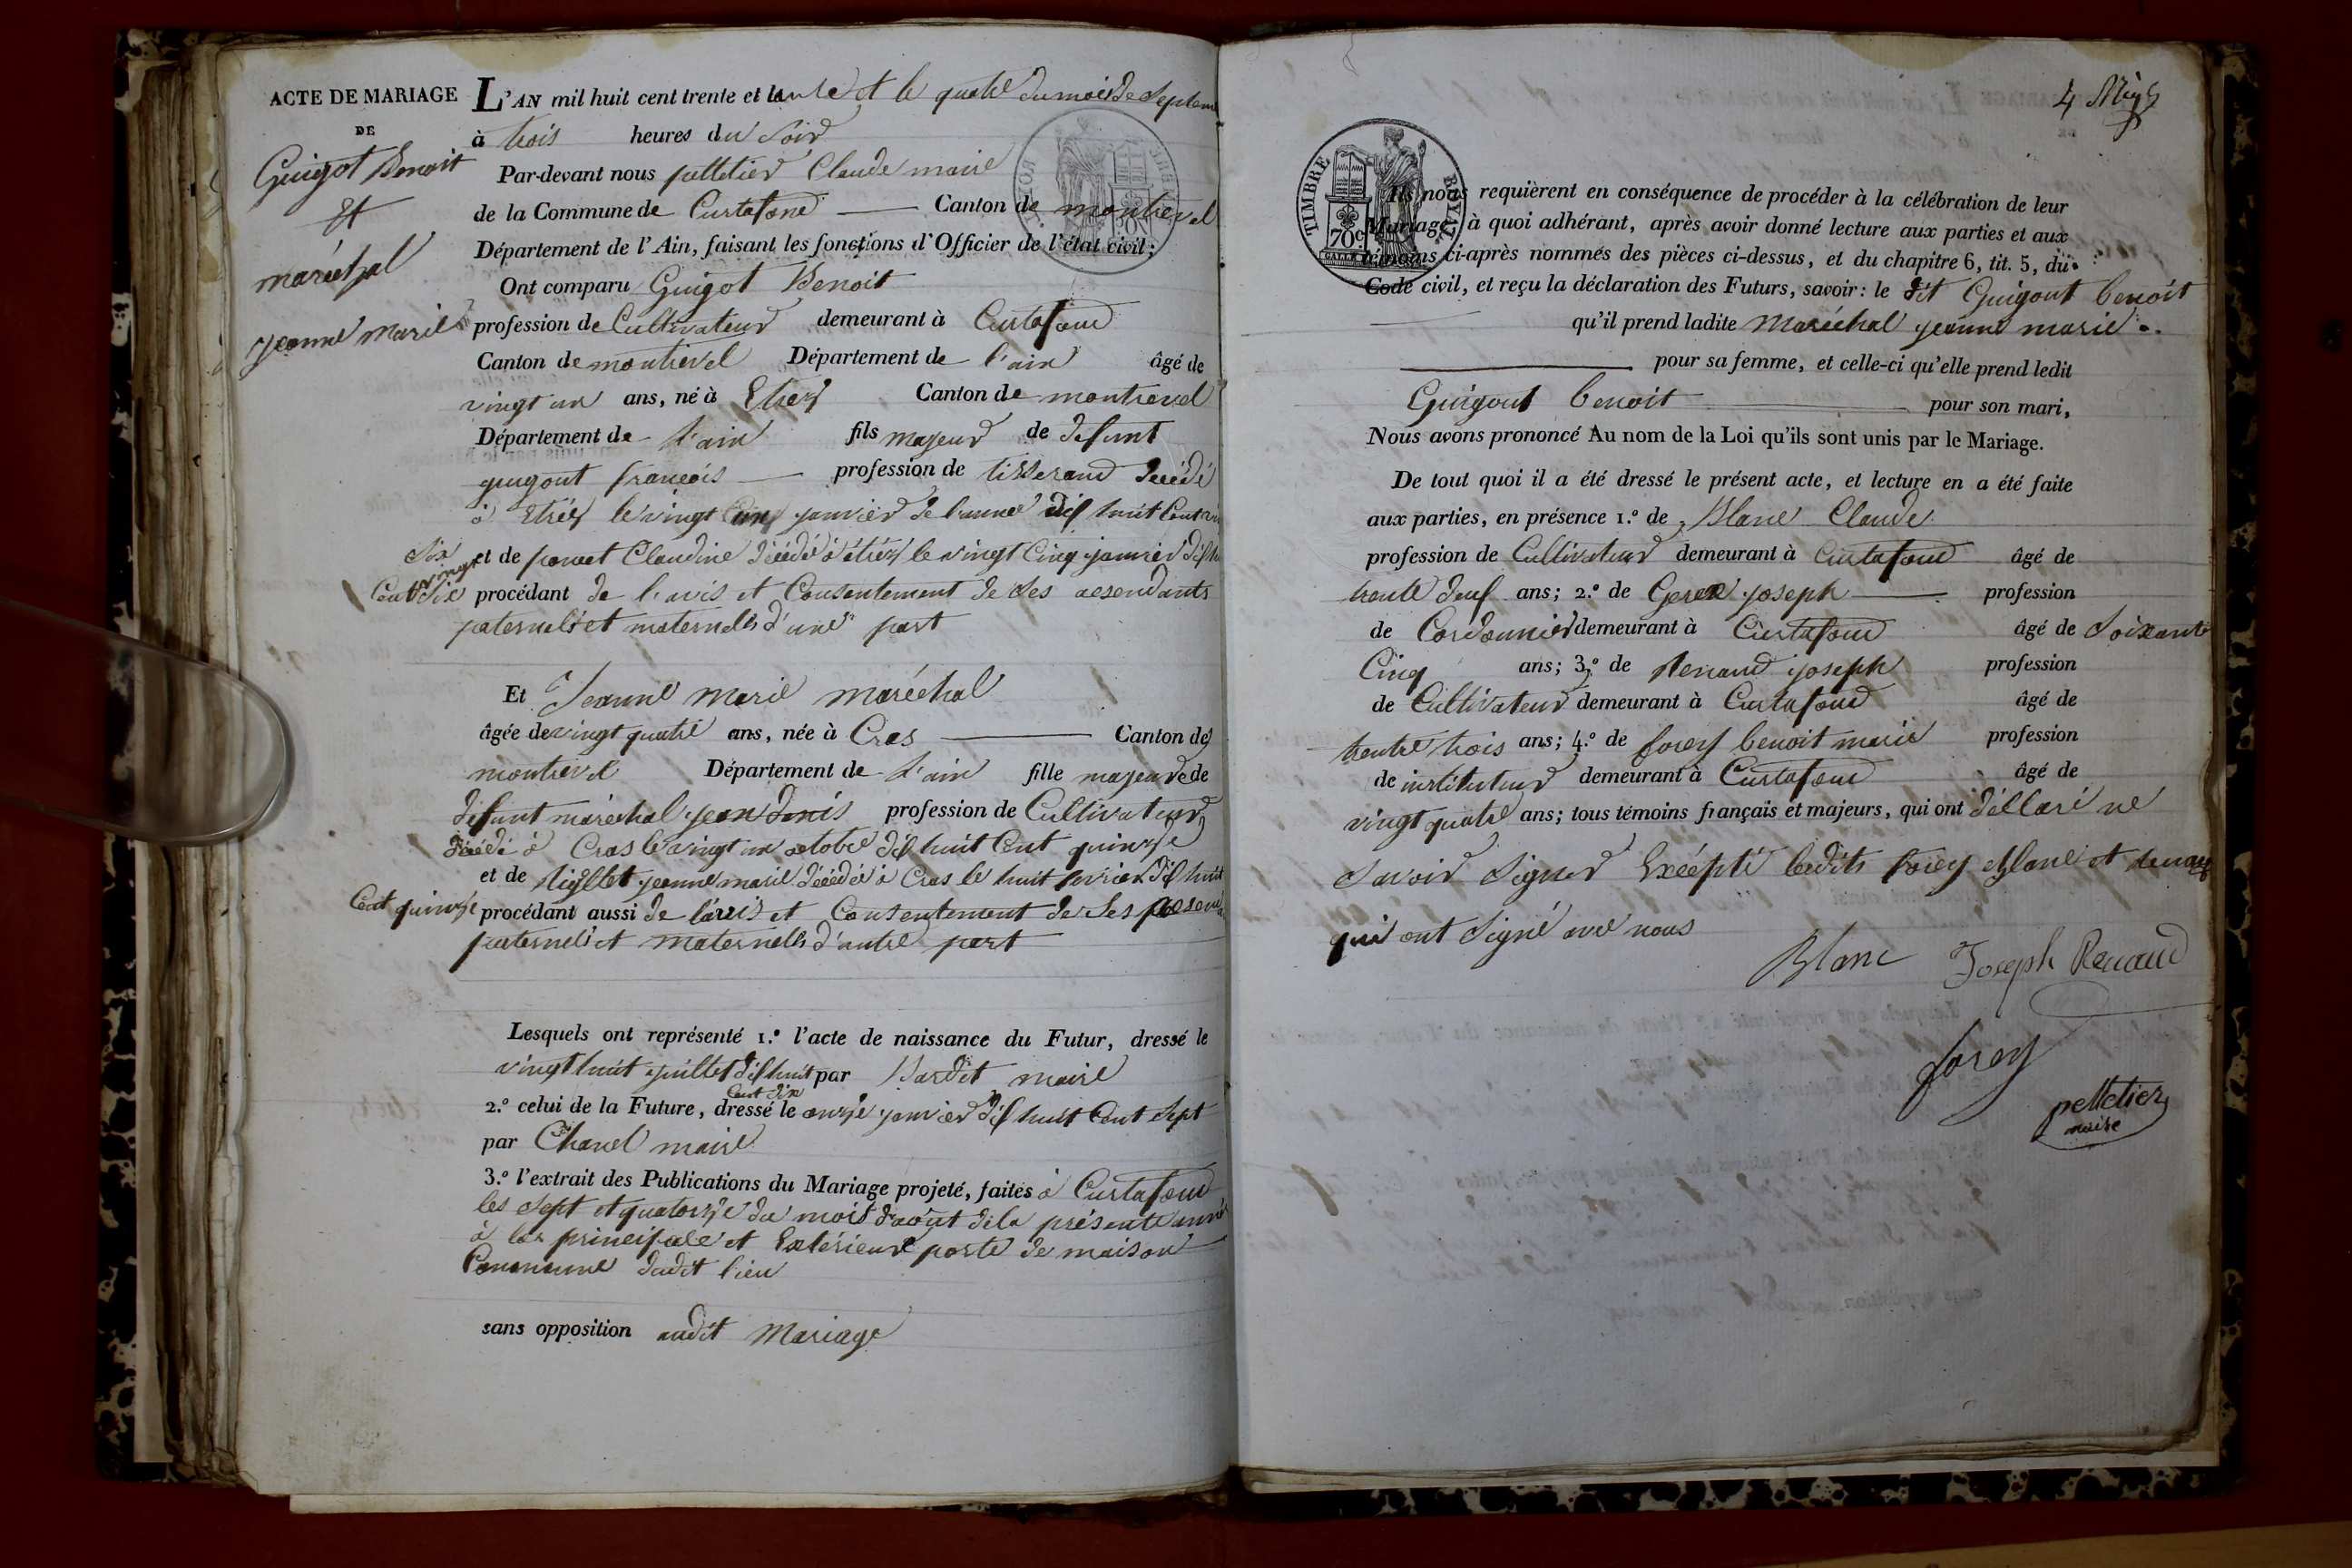 ACTE DE MARIAGE
DE
Guigot Benoit
Et
maréchal
jeanne marie
L'AN mil huit cent trente et et le quatre du mois de Septem
à trois heures du Soir
Par-devant nous pelletier Claude maire
de la Commune de Curtafond Canton de montrevel
Département de l'Ain, faisant les fonctions d'Officier de l'état civil;
Ont comparu Guigot Benoit
profession de Cultivateur demeurant à Curtafond
Canton de montrevel Département de l'ain âgé de
vingt un ans, né à Etrez Canton de montrevel
Département de l'ain fils majeur de defunt
guigout francois profession de tisserand décédé
à Etrez le vingt Cinq janvier de l'année dix huit Cent vin
Six et de Claudine décédé à étréz le vingt Cinq janvier dix hu
Cent vingt Six procédant de l'avis et Consentement de Ses asendants
paternels et maternels d'une part
Et Jeanne Marie maréchal
âgée de vingt quatre ans, née à Cras Canton de
montrevel Département de l'ain fille majeure de
défunt maréchal jean denis profession de Cultivateur
décédé à Cras le vingt un octobre dix huit Cent quinze
et de jeanne marie décédée à Cras le huit dix huit
Cent quinze procédant aussi de l'avis et Consentement de Ses
paternels et maternels d'autre part
Lesquels ont représenté 1.º l'acte de naissance du Futur, dressé le
vingt huit juillet dix huit par maire
Cent dix
2.º celui de la Future, dressé le onze janvier dix huit Cent Sept
par Chanel maire
3.º l'extrait des Publications du Mariage projeté, faites à Curtafond
les Sept et quatorze du mois d'août de la présente année
à la principale et Extérieure porte de maison
Commune dudit lieu
sans opposition audit Mariage
4
TIMBRE ROYAL
70 c
Ils nous requièrent en conséquence de procéder à la célébration de leur
Mariage; à quoi adhérant, après avoir donné lecture aux parties et aux
témoins ci-après nommés des pièces ci-dessus, et du chapitre 6, tit. 5, du
Code civil, et reçu la déclaration des Futurs, savoir: le dit Guigout benoit
qu'il prend ladite Maréchal jeanne marie
pour sa femme, et celle-ci qu'elle prend ledit
Guigout benoit pour son mari,
Nous avons prononcé Au nom de la Loi qu'ils sont unis par le Mariage.
De tout quoi il a été dressé le présent acte, et lecture en a été faite
aux parties, en présence 1.º de Blanc Claude
profession de Cultivateur demeurant à Curtafond âgé de
trente deux ans; 2.º de joseph profession
de Cordonnier demeurant à Curtafond âgé de Soixante
Cinq ans; 3.º de Renaud joseph profession
de Cultivateur demeurant à Curtafond âgé de
trentre trois ans; 4.º de forey benoit marie profession
de instituteur demeurant à Curtafond âgé de
vingt quatre ans; tous témoins français et majeurs, qui ont déllaré ne
Savoir Signer Excépté lesdits forey Blanc et renaud
qui ont Signé avec nous
Blanc Joseph Renaud
forey
pelletier
maire